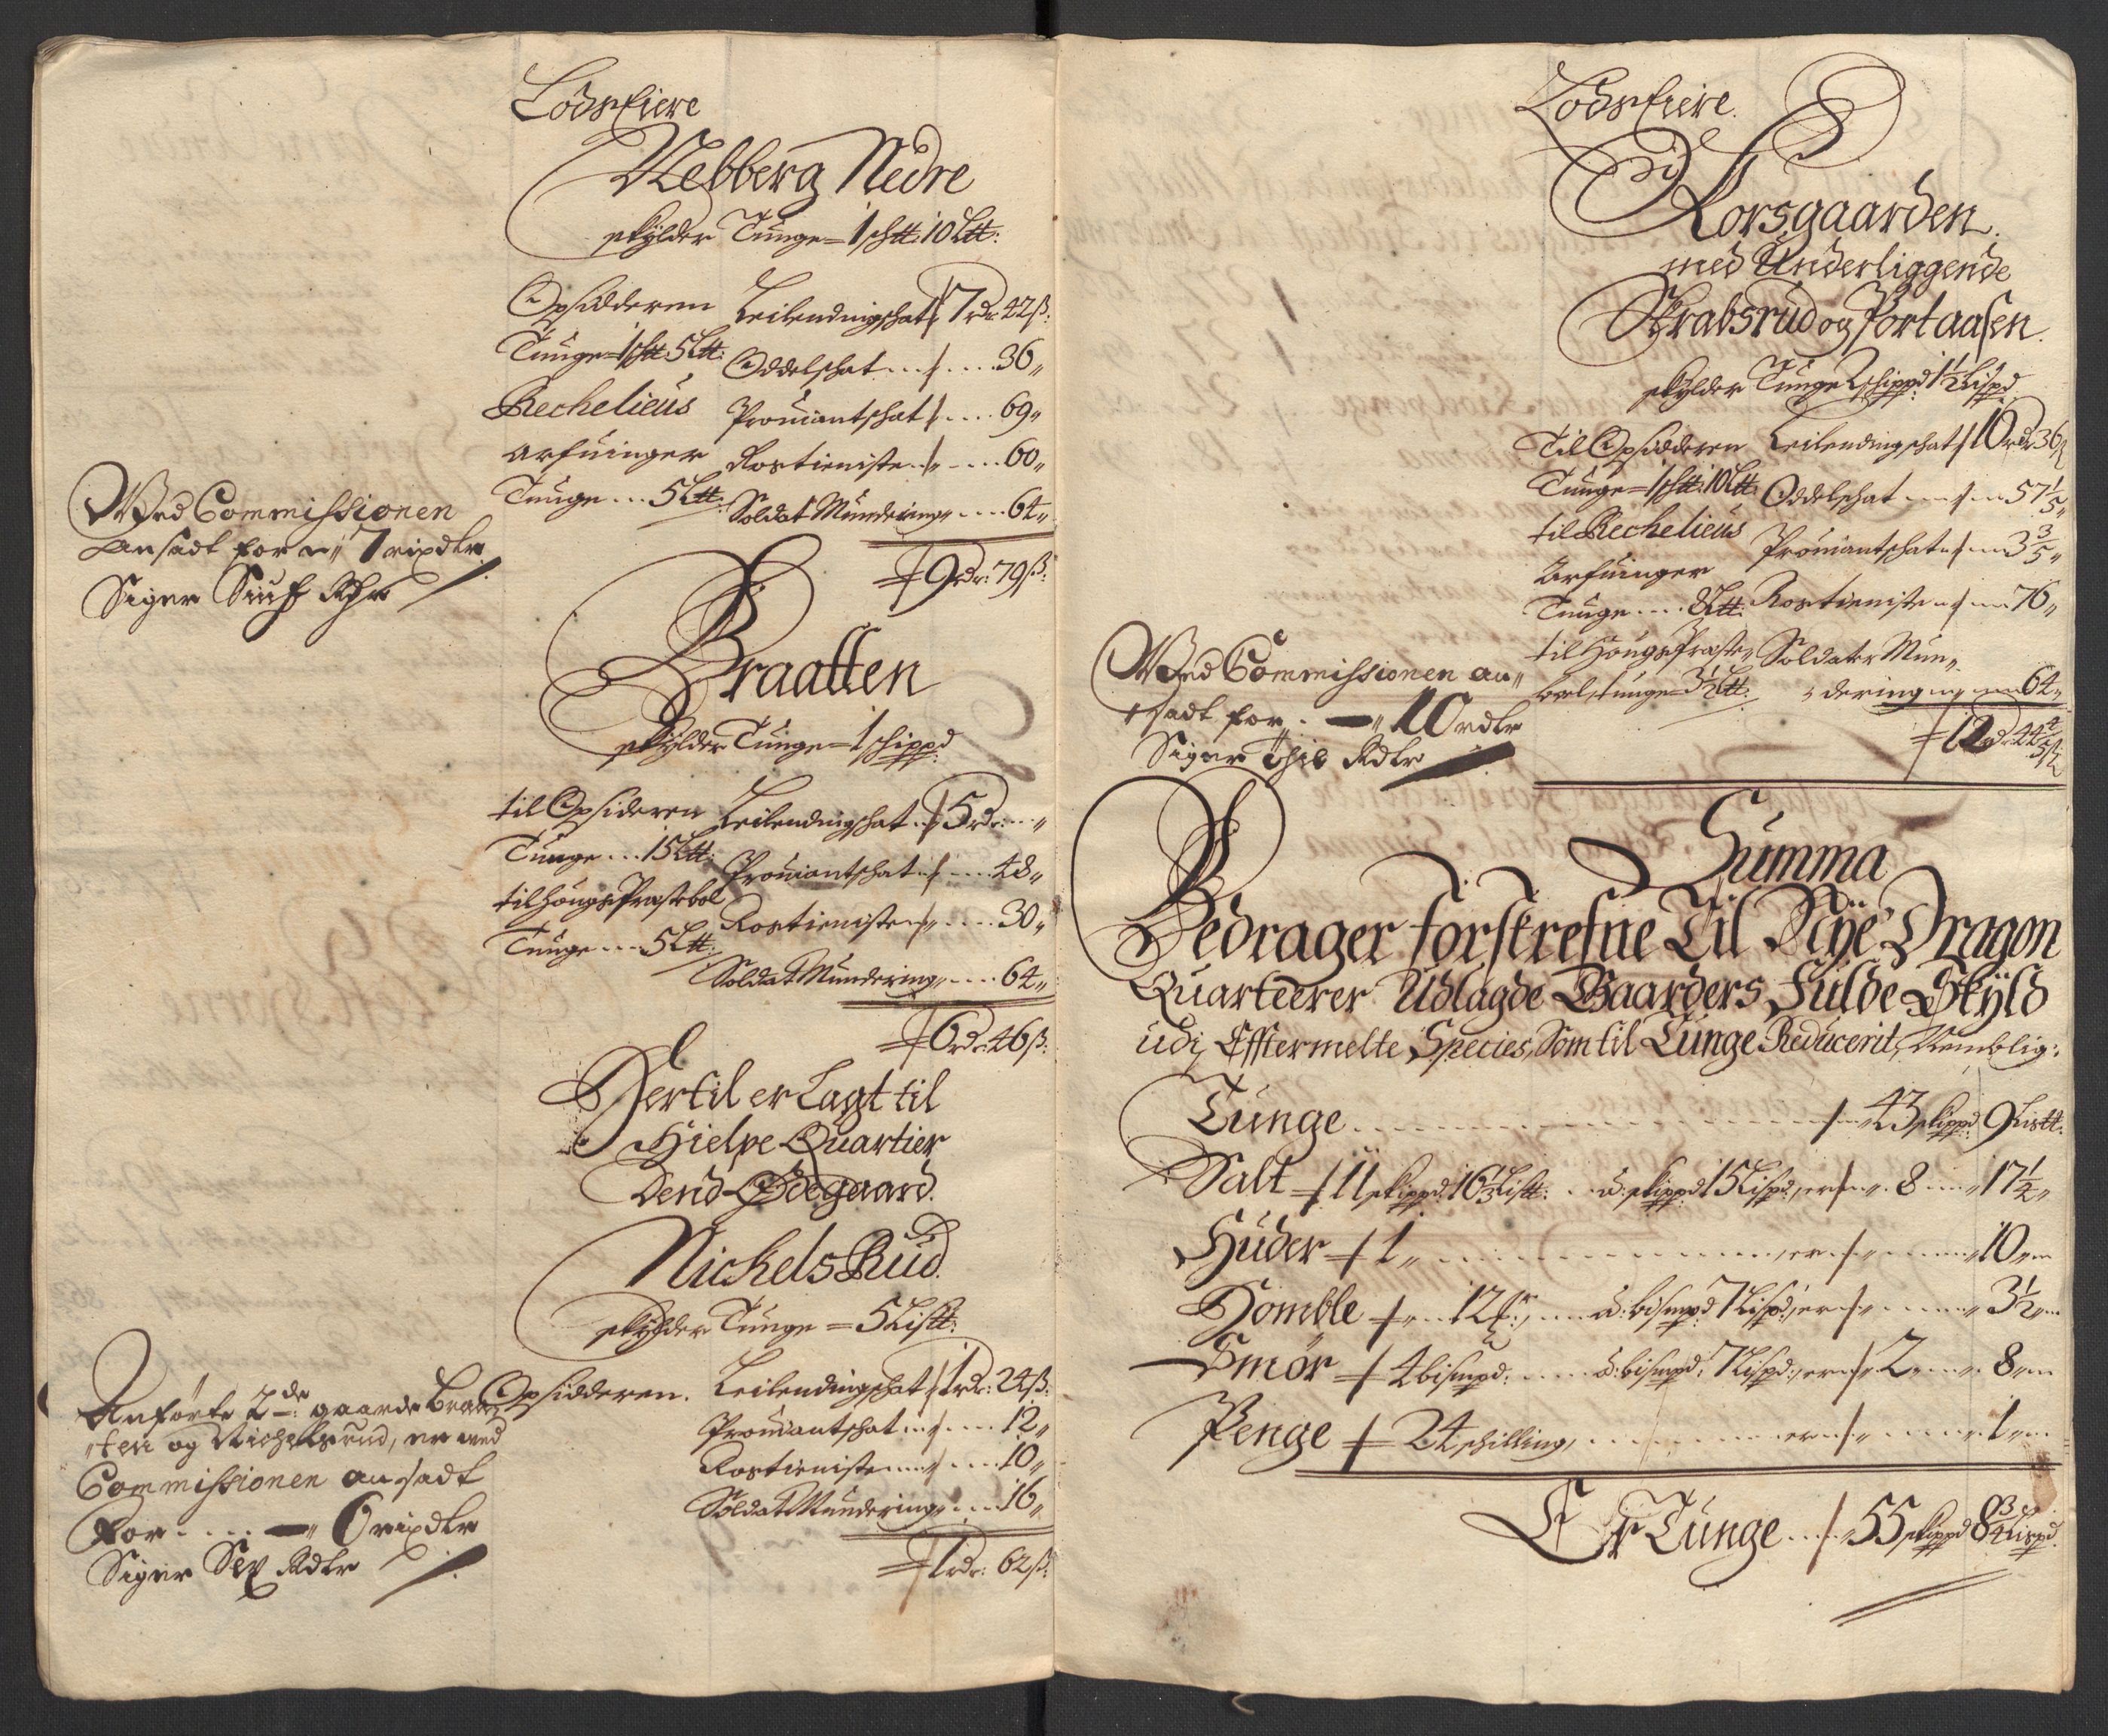 Lodseiere
Nebberg Nedre
skylder Tunge = 1 schtt: 10 Ltt:
Opsidderen Leilendingschat 7 rdr 42 ß:
Tunge = 1 schtt: 5 Ltt: Oddelschat 36 "
Rechelieus Prouiantschat 69 "
arfuinger Rostieniste 60 "
Tunge 5 Ltt: Soldat Mundering 64 "
9 rdr: 79 ß:
Wed Commissionen
ansadt for 7 rixdlr
Siger Siuf Rdr
Braatten
skylder Tunge = 1 schippd
til Opsideren Leilendingschat 5 rdr
Tunge 15 Ltt: Prouiantschat 48 "
til Hougs Prastebol Rostieniste 30 "
Tunge 5 Ltt: Soldat Mundering 64 "
6 rdr: 46 ß:
Hertil er Lagt til
Hielpe Quartier
Dend Ødegaard
Nichels Rud
skylder Tunge = 5 Listt:
Opsidderen. Leilendingschat 1 rdr: 24 ß:
Prouiantschat 12 "
Rostieniste 10 "
Soldat Mundering 16 "
1 rdr: 62 ß:
Anførte 2de gaarde Braa
ten og Nichelsrud, er wed
Commissionen ansadt
for 6 rixdlr
Siger Sex Rdlr
Lodseiere.
Korsgaarden
med Underliggende
Skrabsrud og Portaasen.
skylder Tunge 2 schippd 1½ Lispd
Til Opsidderen Leilendingschat 10 rdr 36 ß
Tunge = 1 schtt: 10 Ltt: Oddelschat 57 1/5 "
til Rechelieus Prouiantschat 3 3/5 "
Arfuinger
Tunge 8 Ltt: Rostieniste 76 "
til Hougs Præste Soldater Mun
boel, tunge 3½ Ltt: dering 64 "
12 rdr 44 4/5 ß
Wed Commissionen an
sadt for 10 rdlr
Siger Thie Rdlr
Summa
Bedrager forskrefne Til Nÿe Dragon
Quarteerer Udlagde Gaarders Fulde Skÿld
udi Efftermelte Species, Som til Tunge Reducerit, Nemblig:
Tunge 43 skippd: 9 Listt:
Salt 11 skippd: 16½ Listt: à skippd 15 Lispd, er 8 17¼ "
Huder 1 er 10
Homble 12 à bismpd 7 Lispd, er 3½
Smör 4 bismpd: à bismpd: 7 Lispd:, er 2 8
Penge 24 schilling, er 1
Er Tunge 55 skippd 8¾ Lispd.